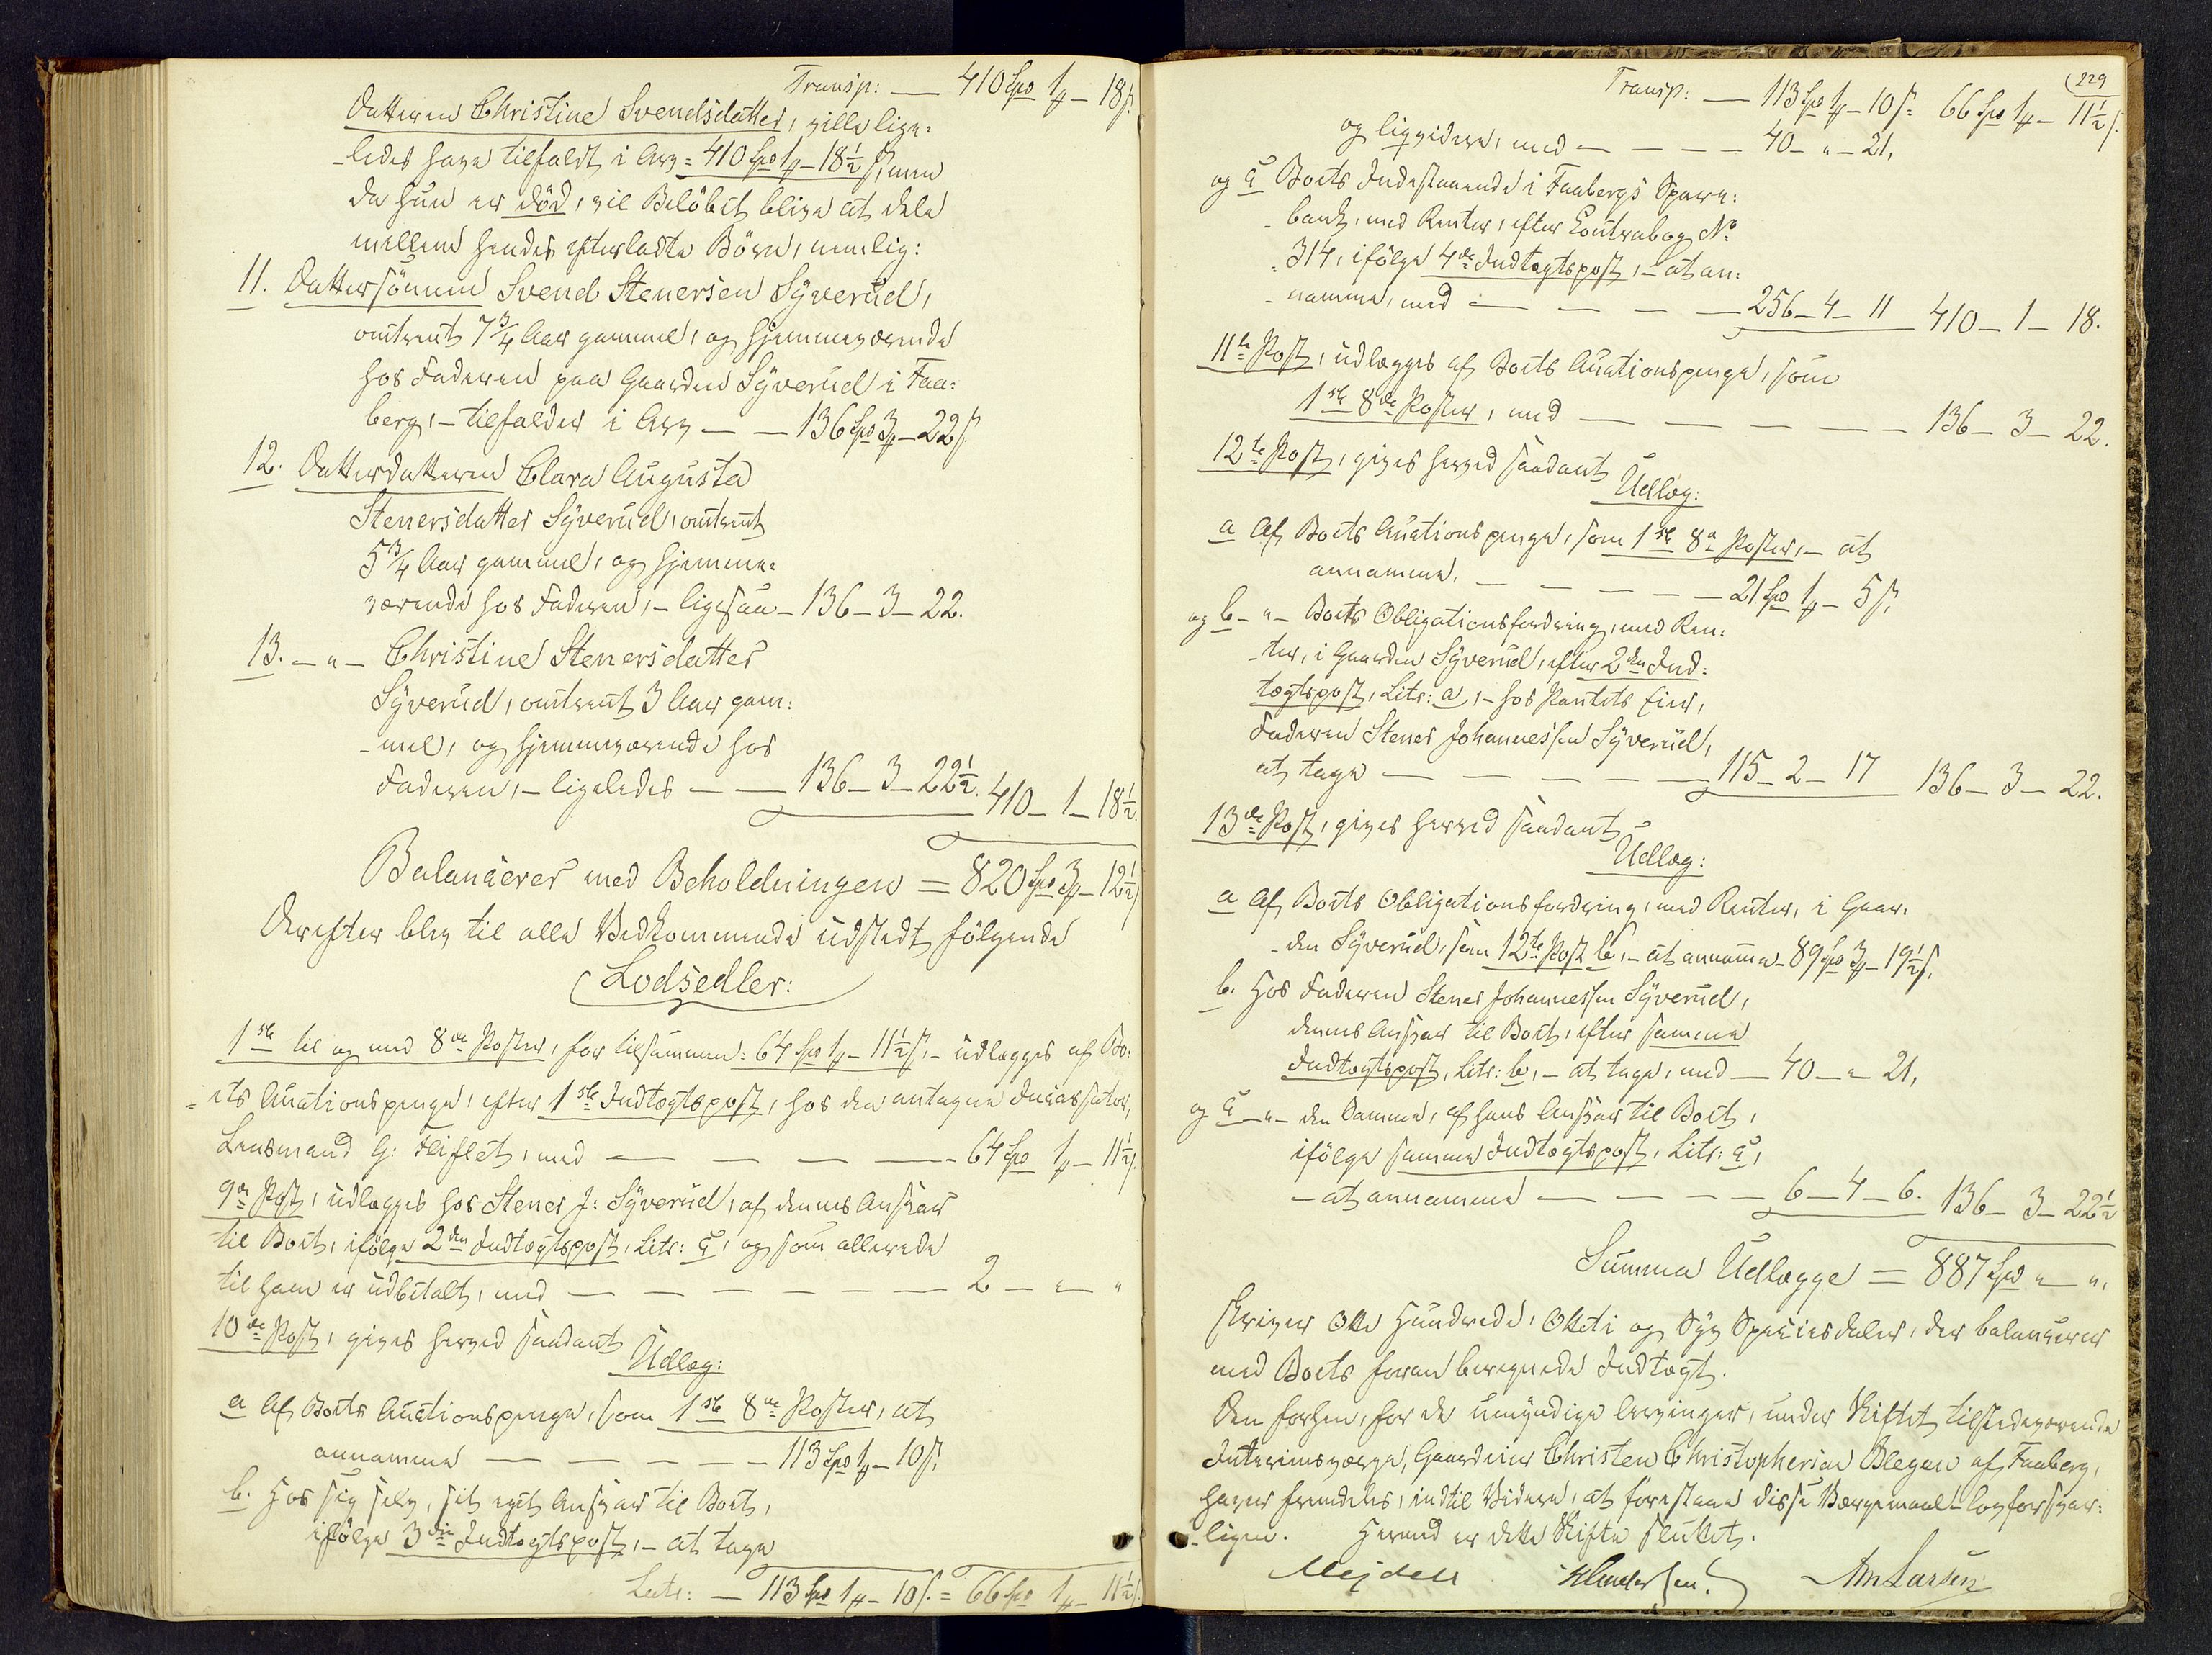 Transp: — 410 Spd 1 ℔ - 18 ß.
Datteren Christine Svendsdatter, vilde lige-
-ledes have tilfaldt i Arv = 410 Spd 1 ℔ - 18½ ß, men
da hun er död, vil Belöbet blive at dele
mellem hendes efterladte Börn, nemlig:
11. Dattersönnen Svend Stenersen Syverud,
omtrent 7¾ Aar gammel, og hjemmeværende
hos Faderen paa Gaarden Syverud i Faa-
berg, - tilfalder i Arv — 136 Spd 3 ℔ - 22 ß.
12. Datterdatteren Clara Augusta
Stenersdatter Syverud, omtrent
5¾ Aar gammel, og hjemme-
værende hos Faderen, - ligesaa - 136 - 3 - 22.
13. — " — Christine Stenersdatter
Syverud, omtrent 3 Aar gam-
-mel, og hjemmeværende hos
Faderen, - ligeledes — 136 - 3 - 22½. 410 - 1 - 18½.
Balancerer med Beholdningen = 820 Spd 3 ℔ - 12½ ß.
Derefter blev til alle Vedkommende udstedt fölgende
Lodsedler:
1ste til og med 8de Poster, for tilsammen: 64 Spd 1 ℔ - 11½ ß, - udlægges af Bo-
-ets Auctionspenge, efter 1ste Indtægtspost, hos den antagne Incassator,
Lensmand G: Fliflet, med — 64 Spd 1 ℔ - 11½ ß.
9de Post, udlægges hos Stener J: Syverud, af dennes Ansvar
til Boet, ifölge 2den Indtægtspost, Litr: c, og som allerede
til ham er udbetalt, med — 2 — " — "
10de Post, gives herved saadant
Udlæg:
a Af Boets Auctionspenge, som 1ste 8de Poster, at
annamme — 113 Spd 1 ℔ - 10 ß.
b. Hos sig selv, sit eget Ansvar til Boet,
ifölge 3die Indtægtspost, - at tage
Lats: — 113 Spd 1 ℔ - 10 ß. = 66 Spd 1 ℔ - 11½ ß.
229
Transp: — 113 Spd 1 ℔ - 10 ß = 66 Spd 1 ℔ - 11½ ß.
og liqvidere, med — 40 - " - 21,
og c Boets Indestaaende i Faabergs Spare-
-bank, med Renter, efter Contrabog No
314, ifölge 4de Indtægtspost, - at an-
-namme, med — 256 - 4 - 11 410 - 1 - 18.
11te Post, udlægges af Boets Auctionspenge, som
1ste 8de Poster, med — 136 - 3 - 22.
12te Post, gives herved saadant
Udlæg:
a Af Boets Auctionspenge, som 1ste 8de Poster, - at
annamme, — 21 Spd 1 ℔ - 5 ß,
og b - " - Boets Obligationsfordring, med Ren-
-ter, i Gaarden Syverud, efter 2den Ind-
tægtspost, Litr: a, - hos Pantets Eier,
Faderen Stener Johannessen Syverud,
at tage — 115 - 2 - 17 136 - 3 - 22.
13de Post, gives herved saadant
Udlæg:
a Af Boets Obligationsfordring, med Renter, i Gaar-
-den Syverud, som 12te Post b, - at annamme - 89 Spd 3 ℔ - 19½ ß,
b. Hos Faderen Stener Johannessen Syverud,
dennes Ansvar til Boet, efter samme
Indtægtspost, Litr: b, - at tage, med — 40 - " 21,
og c - " - den Samme, af hans Ansvar til Boet,
ifölge samme Indtægtspost, Litr: c,
- at annamme — 6 - 4 - 6. 136 - 3 - 22½
Summa Udlægge = 887 Spd " — ",
skriver Otte Hundrede, Otteti og Syv Speciesdaler, der balancerer
med Boets foran beregnede Indtægt.
Den forhen, for de umyndige Arvinger, under Skiftet tilstedeværende
Interimsværge, Gaardeier Christen Christophersen Blegen af Faaberg,
haver fremdeles, indtil Videre, at forestaae disse Værgemaal lovforsvar-
-ligen. Hermed er dette Skifte sluttet.
Mejdell Am Larsen